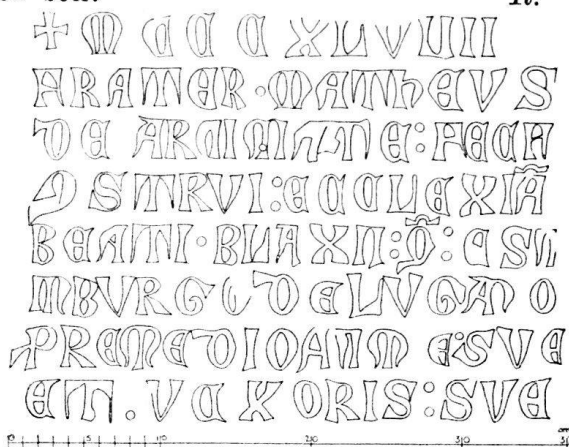 ✠ M C C C XLVUII
FRATER · MATHEVS
DE ARCIMATE : FECA
9STRVI : ECCLEXIA
BEATI · BLAXII : Q̄ : EST
IMBVRGU DELVGANO
PREMEDIO AIME : SVE
ET . VCXORIS : SVE
0 5 10 20 30